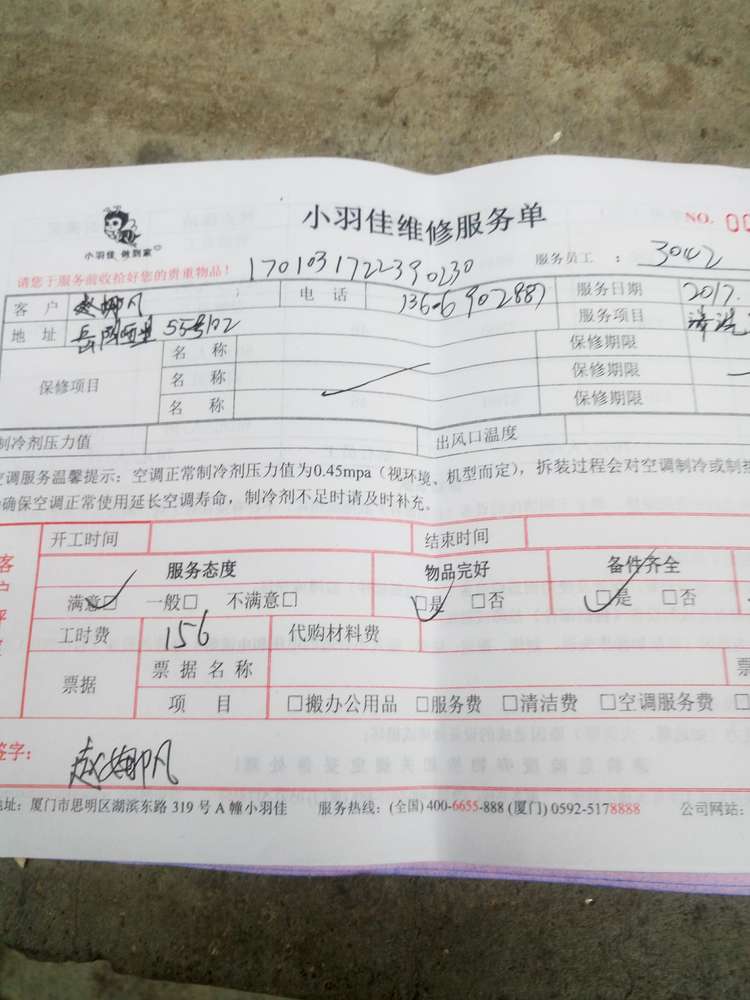 小羽佳维修服务单
NO. 00
小羽佳 做到家
请您于服务前收拾好您的贵重物品！ 1701031722390230 服务员工 ： 3042
客 户 赵娜凡 电 话 13606902887 服务日期 2017.
地 址 岳阳西里 55号102 服务项目 清洗
保修项目 名 称 保修期限
名 称 保修期限
名 称 保修期限
制冷剂压力值 出风口温度
空调服务温馨提示：空调正常制冷剂压力值为0.45mpa（视环境、机型而定），拆装过程会对空调制冷或制热
确保空调正常使用延长空调寿命，制冷剂不足时请及时补充。
开工时间 结束时间
客户评 服务态度 物品完好 备件齐全
满意□ 一般□ 不满意□ □是 □否 □是 □否
工时费 156 代购材料费
票据 票 据 名 称 票
项 目 □搬办公用品 □服务费 □清洁费 □空调服务费 □
签字： 赵娜凡
地址：厦门市思明区湖滨东路 319 号 A 幢小羽佳 服务热线：(全国) 400-6655-888 (厦门) 0592-5178888 公司网站：